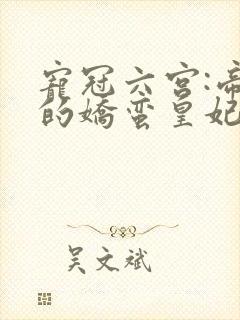 寵冠六宮:帝
的嬌蠻皇妃
吴文斌